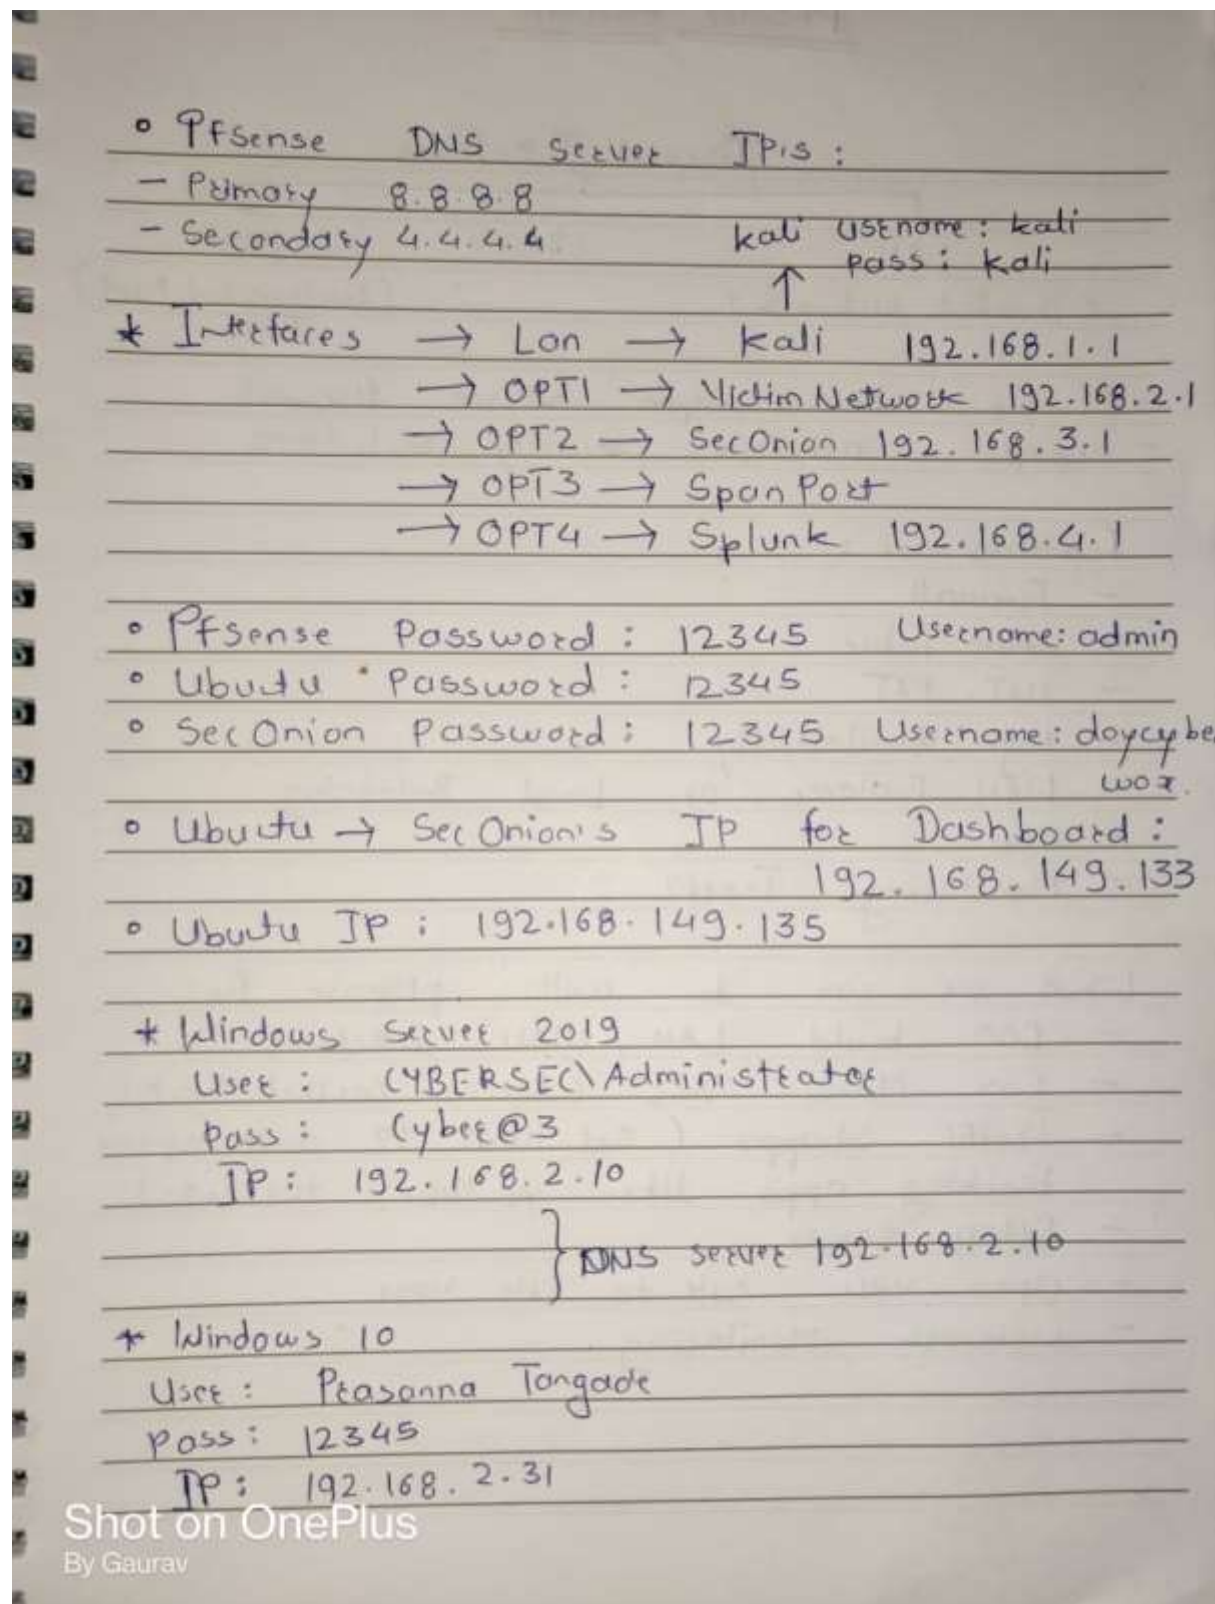 • Pfsense DNS Server IP's :
- Primary 8.8.8.8
- Secondary 4.4.4.4
kali username : kali
pass : kali
↑
* Interfaces → Lan → Kali 192.168.1.1
→ OPT1 → Victim Network 192.168.2.1
→ OPT2 → SecOnion 192.168.3.1
→ OPT3 → Span Port
→ OPT4 → Splunk 192.168.4.1
• Pfsense Password : 12345 Username: admin
• Ubuntu Password : 12345
• SecOnion Password : 12345 Username: doycybe
wox.
• Ubuntu → SecOnion's IP for Dashboard :
192.168.149.133
• Ubuntu IP : 192.168.149.135
* Windows Server 2019
User : CYBERSEC\Administrator
Pass : Cyber@3
IP : 192.168.2.10
} DNS server 192.168.2.10
* Windows 10
User : Prasanna Tongade
Pass : 12345
IP : 192.168.2.31
Shot on OnePlus
By Gaurav